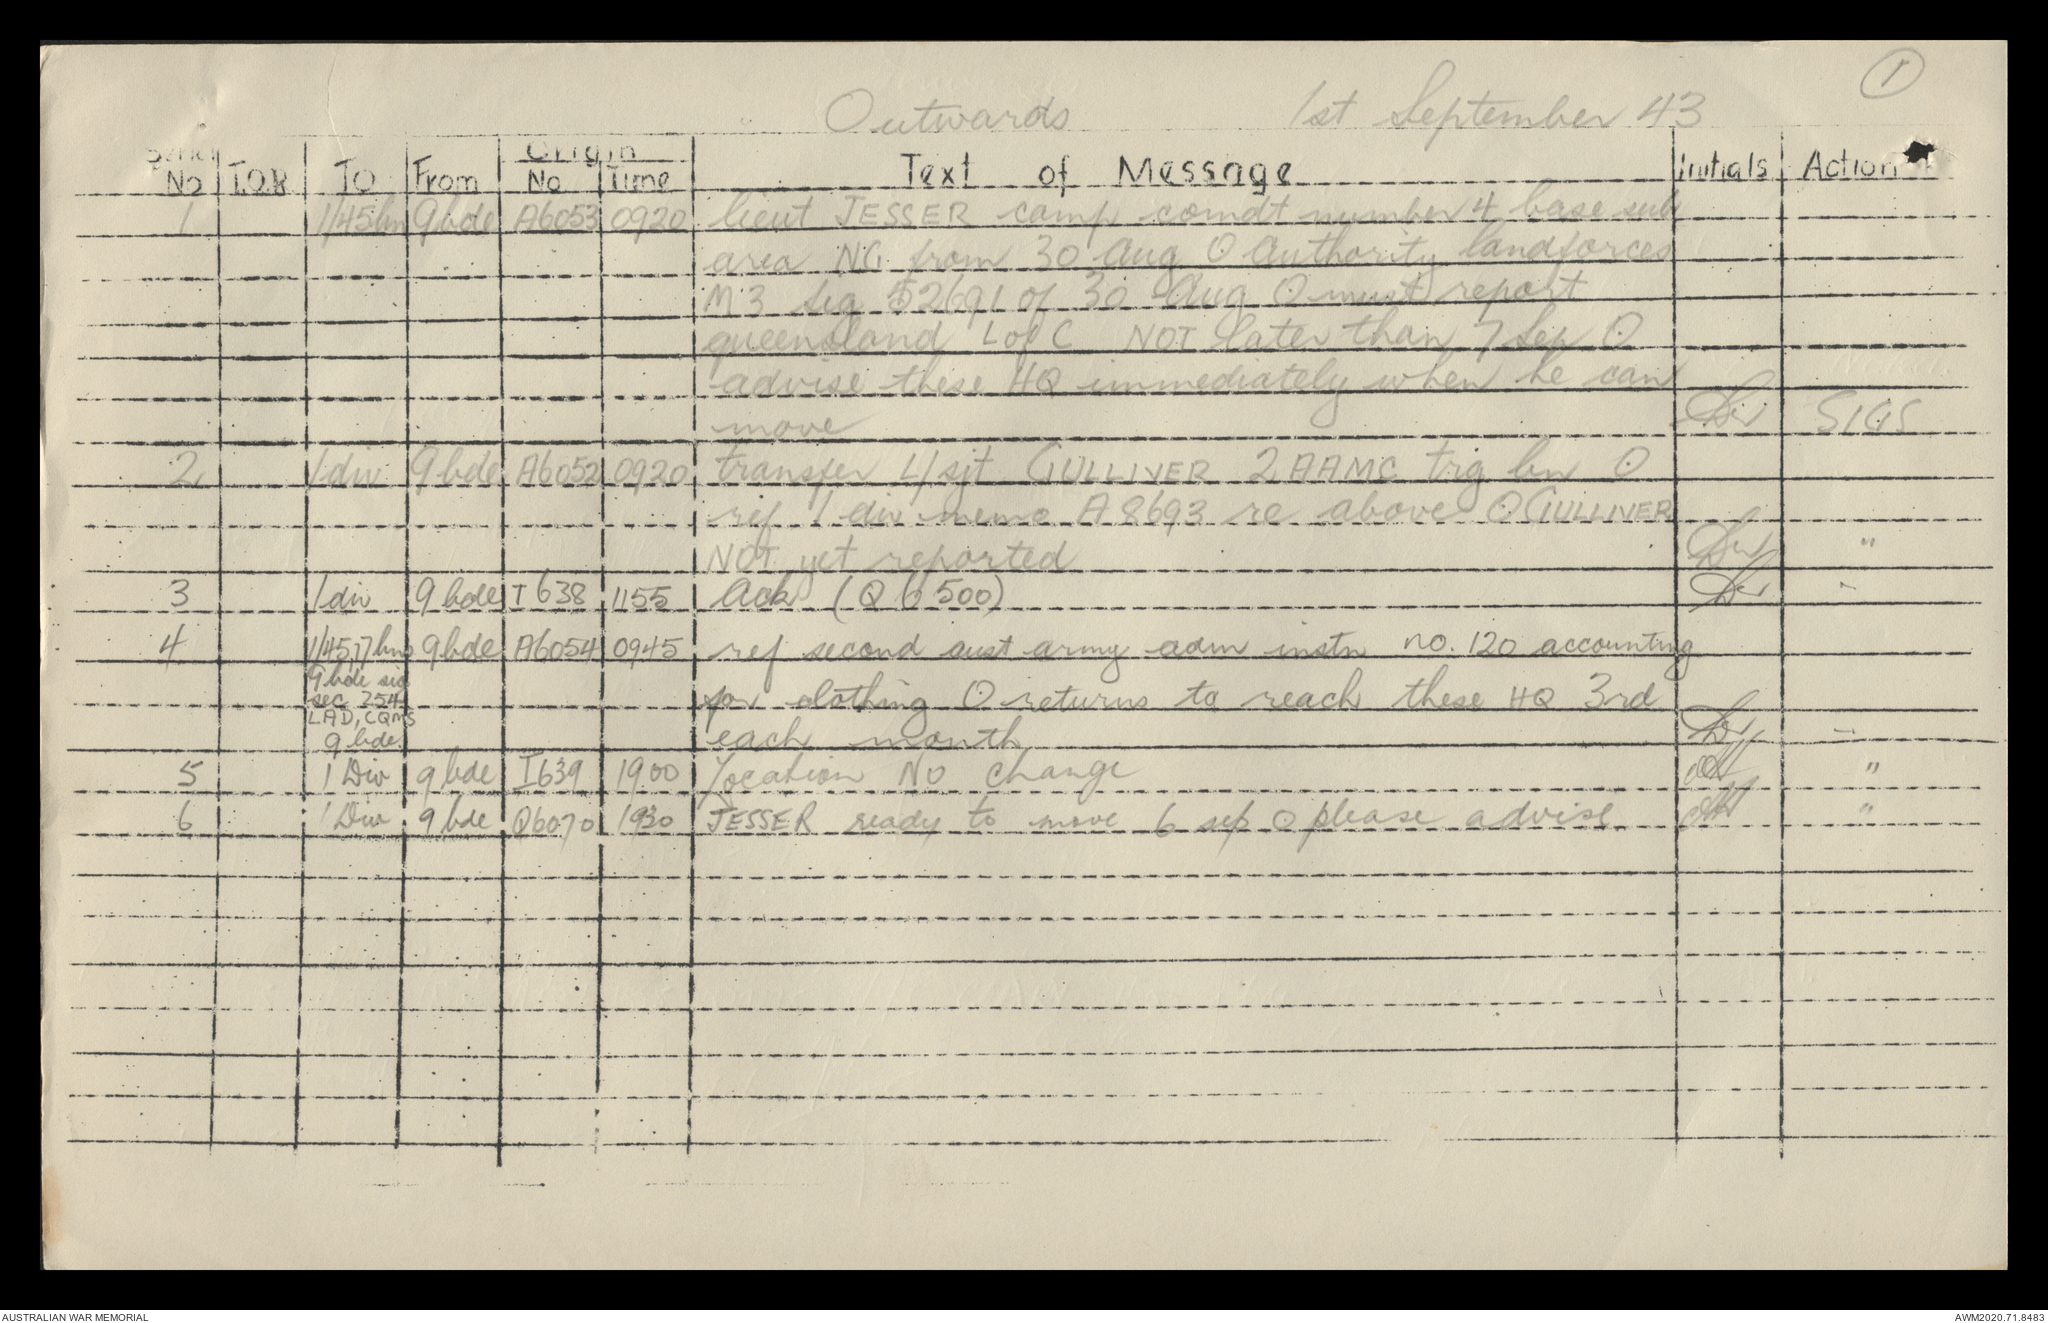 1
Outwards 1st September 43
Serial No T.O.R TO From Origin No Time Text of Message Initials Action
1 1/45bn 9bde A6053 0920 lieut JESSER camp comdt number 4 base sub
area NG from 30 Aug O Authority landforces
M3 sig 52691 of 30 Aug O must report
queensland L of C NOT later than 7 Sep O
advise these HQ immediately when he can
move SIGS
2 1div 9 bde A6052 0920 transfer L/sjt GULLIVER 2 AAMC trg bn O
ref 1 div memo A8693 re above O GULLIVER
NOT yet reported "
3 1div 9 bde I638 1155 Ack (Q 6500) "
4 1/45,7 bns 9bde A6054 0945 ref second aust army adm instn no. 120 accounting
9 bde sig
sec 254 for clothing O returns to reach these HQ 3rd
LAD, CQMS
9 bde. each month "
5 1 Div 9 bde I639 1900 location No change "
6 1 Div 9 bde Q6070 1930 JESSER ready to move 6 sep O please advise "
AUSTRALIAN WAR MEMORIAL AWM2020.71.8483